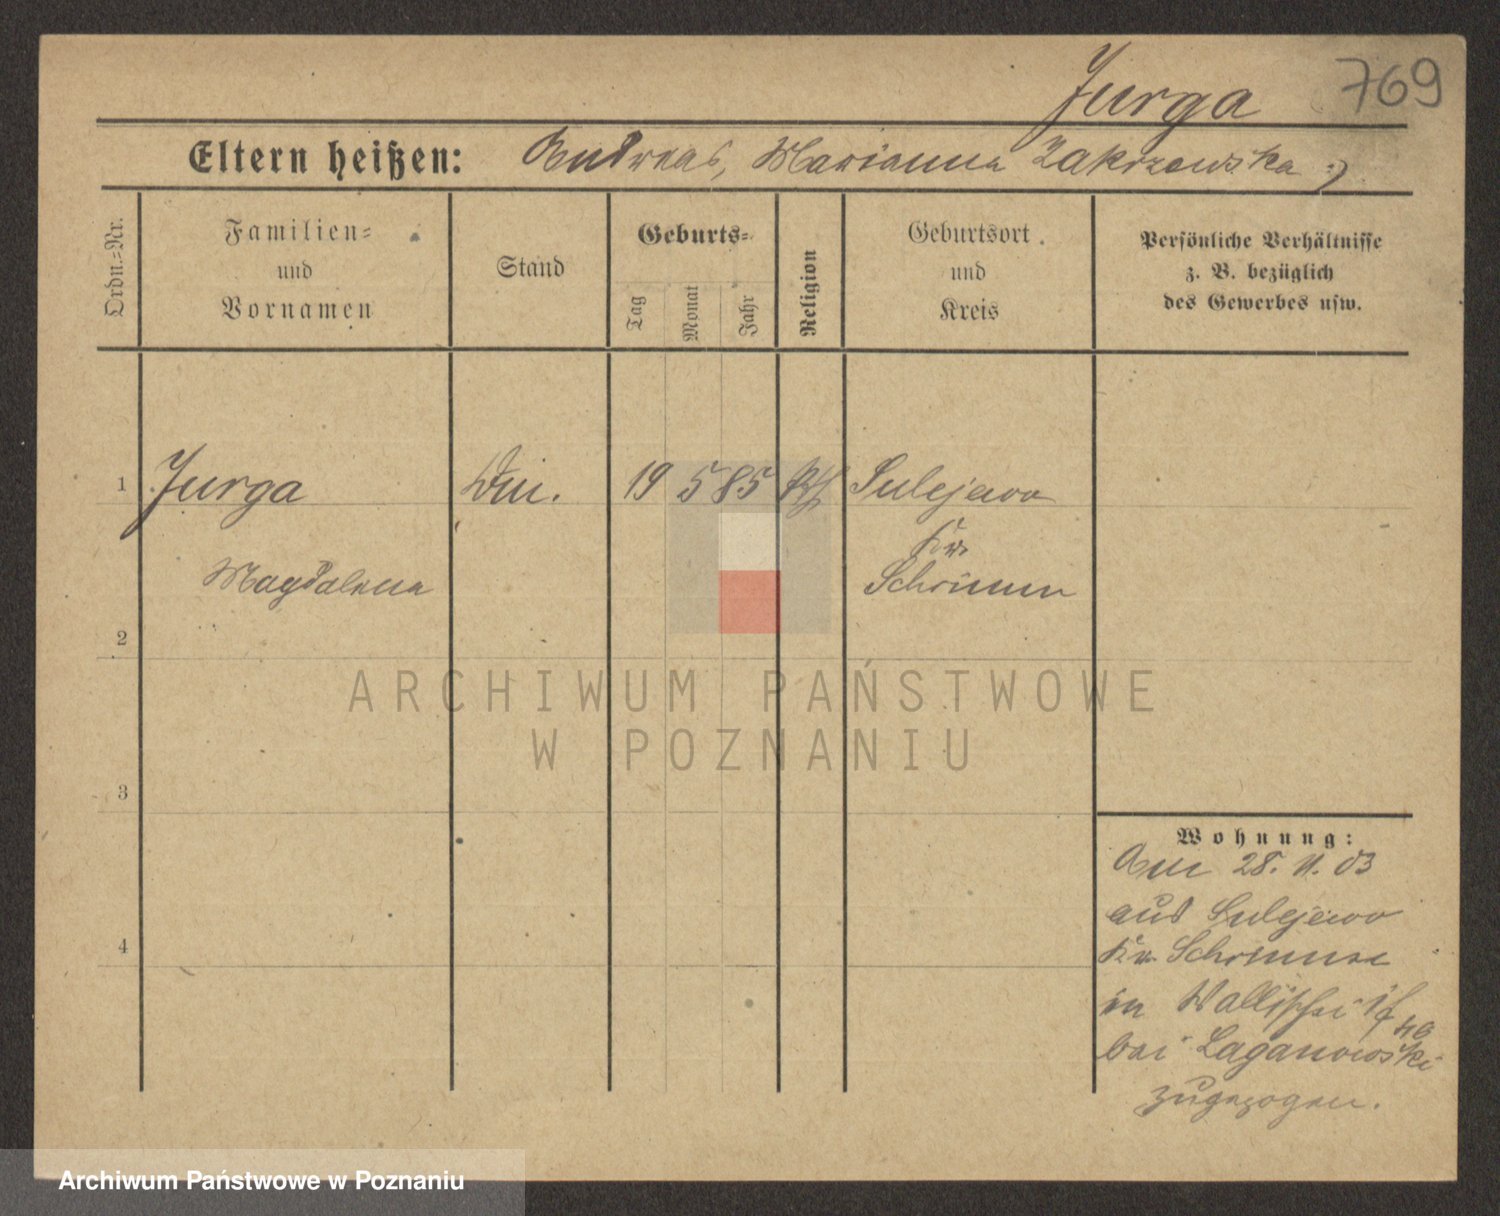 Jurga 769
Eltern heißen: Andreas, Marianna Zakrzewska
Ordn.-Nr.
Familien-
und
Vornamen
Stand
Geburts-
Tag
Monat
Jahr
Religion
Geburtsort
und
Kreis
Persönliche Verhältnisse
z. B. bezüglich
des Gewerbes usw.
1 Jurga 19 5 85 Sulejewo
Kr.
Magdalena Schrimm
2
ARCHIWUM PAŃSTWOWE
W POZNANIU
3
Wohnung:
Am 28. 11. 03
aus Sulejewo
4
Kr. Schrimm
in Wallischei
bei Laganowski
zugezogen.
Archiwum Państwowe w Poznaniu